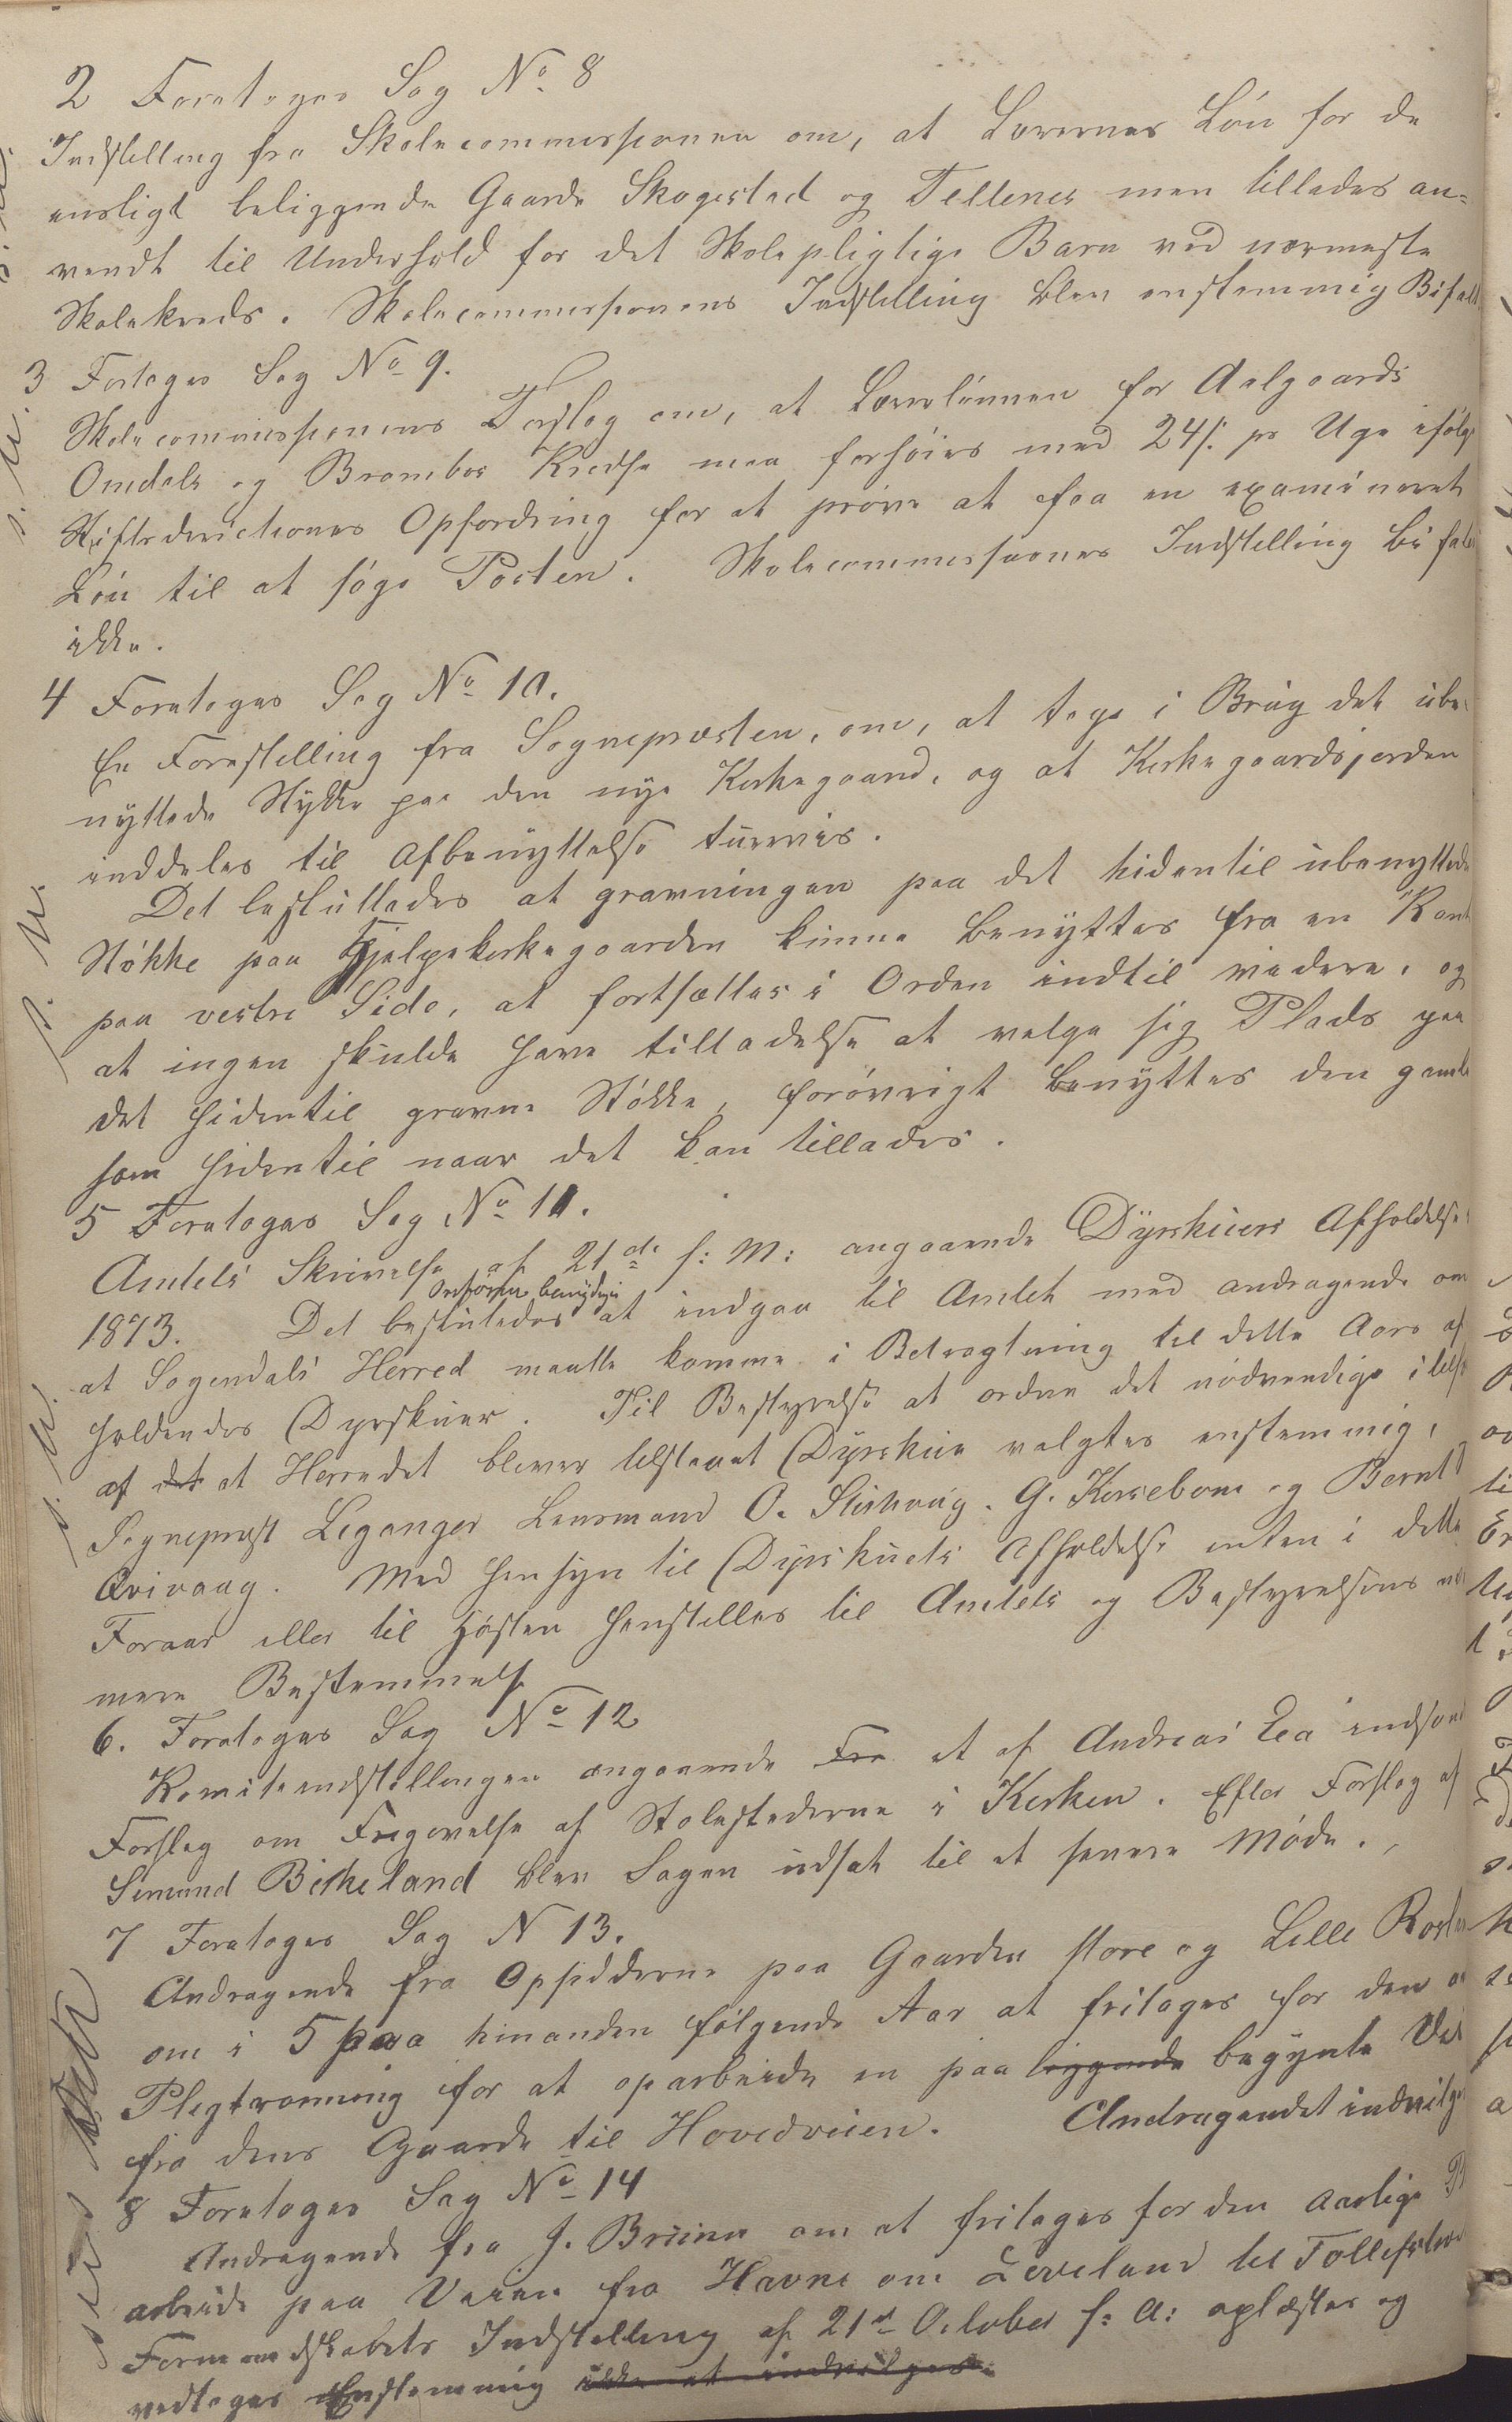 2 Foretoges Sag No 8
Indstilling fra Skolecommissionen om, at Lærernes Løn for de
ensligt beliggende Gaarde Skogestad og Tellenes maa tillades an-
vendt til Underhold for det Skolepligtige Barn ved nærmeste
Skolekreds. Skolecommissionens Indstilling blev enstemmig Bifalt
3 Fortoges Sag No 9.
Skolecommissionens Forslag om, at Lærerlønnen for Aalgaards
Omdals og Brambos Kredse maa forhøies med 24 s. pr Uge ifølge
Stiftsdirectionens Opfordring for at prøve at faa en examineret
Løn til at søge Posten. Skolecommissionens Indstilling bifaldt
ikke.
4 Foretoges Sag No 10.
En Forestilling fra Sognepresten, om, at tage i Brug det ube-
nyttede Stykke paa den nye Kirkegaard, og at Kirkegaardsjorden
inddeles til Afbenyttelse turevis.
Det besluttedes at gravningen paa det hidentil ubenyttede
Støkke paa Hjelpekirkegaarden kunne benyttes fra en Kant
paa vestre Side, at fortsættes i Orden indtil videre, og
at ingen skulde have tilladelse at velge sig Plads paa
det hidentil gravne Støkke, forøvrigt benyttes den gamle
som hidentil naar det kan tillades.
5 Foretoges Sag No 11.
Amtets Skrivelse af 21de f: M: angaaende Dyrskuers Afholdelse
1873. Det besluttedes at indgaa til Amtet med andragende om
at Sogendals Herred maatte komme i Betragtning til dette Aars af
holdendes Dyrskuer. Til Bestyrelse at ordne det nødvendige i tilfælde
af det at Herredet bliver tilstaaet Dyrskue valgtes enstemmig,
Sogneprest Leganger Lensmand O. Slishvaag. G. Kirsebom og Bernt
Qvivaag. Med Hensyn til Dyrskuets Afholdelse enten i dette
Foraar eller til Høsten henstilles til Amtets og Bestyrelsens nær
mere Bestemmelse
6. Foretoges Sag No 12
Komiteindstillingen angaaende Fra et af Andreas Eea indsendt
Forslag om Frigivelse af Stolestederne i Kirken. Efter Forslag af
Simund Birkeland blev Sagen udsat til et senere Møde.
7 Foretoges Sag N 13.
Andragende fra Opsidderne paa Gaarden store og Lille
om i 5 paa hinanden følgende Aar at fritages for den
Pligtrovning for at oparbeide en paa liggende begynte Vei
fra deres Gaarde til Hovedveien. Andragendet indvilges
8 Foretoges Sag No 14
Andragende fra J. Bruun om at fritages for den Aarlige
arbeide paa Veien fra Havne om Leveland til
Formandskabets Indstilling af 21de October f: A: oplæstes og
vedtoges Enstemmig ikke at indvilges.